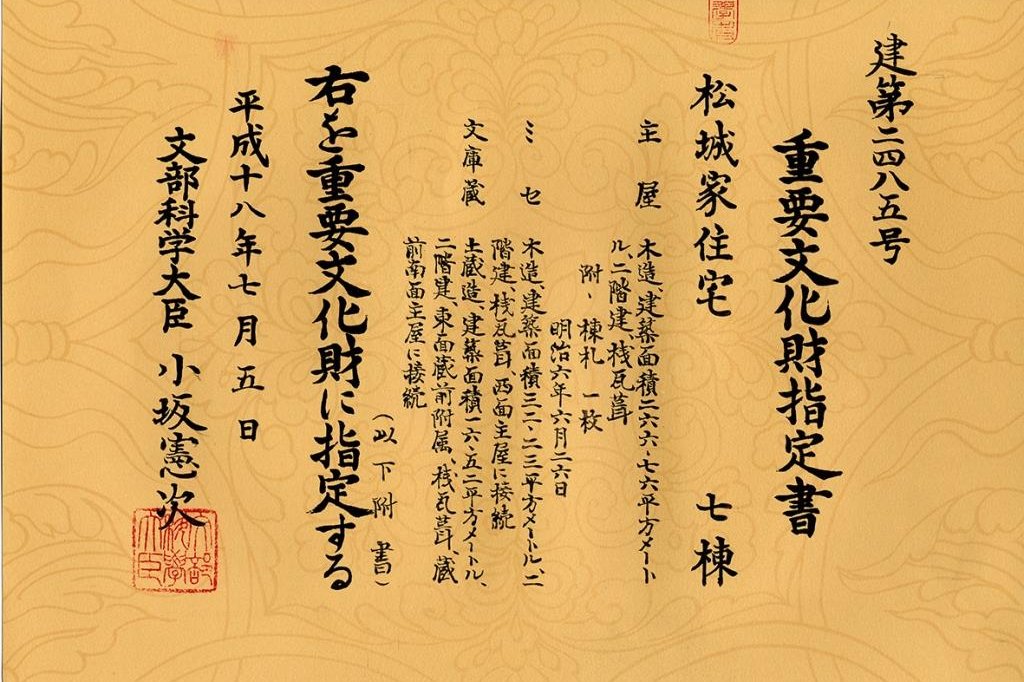 建第二四八五号
重要文化財指定書
松城家住宅 七棟
主屋 木造、建築面積二六六・七六平方メート
ル、二階建、桟瓦葺
附・棟札 一枚
明治六年六月二六日
ミセ 木造、建築面積三二・二三平方メートル、二
階建、桟瓦葺、西面主屋に接続
文庫蔵 土蔵造、建築面積一六・五二平方メートル、
二階建、東面蔵前附属、桟瓦葺、蔵
前南面主屋に接続
(以下附書)
右を重要文化財に指定する
平成十八年七月五日
文部科学大臣 小坂憲次
文部科学大臣